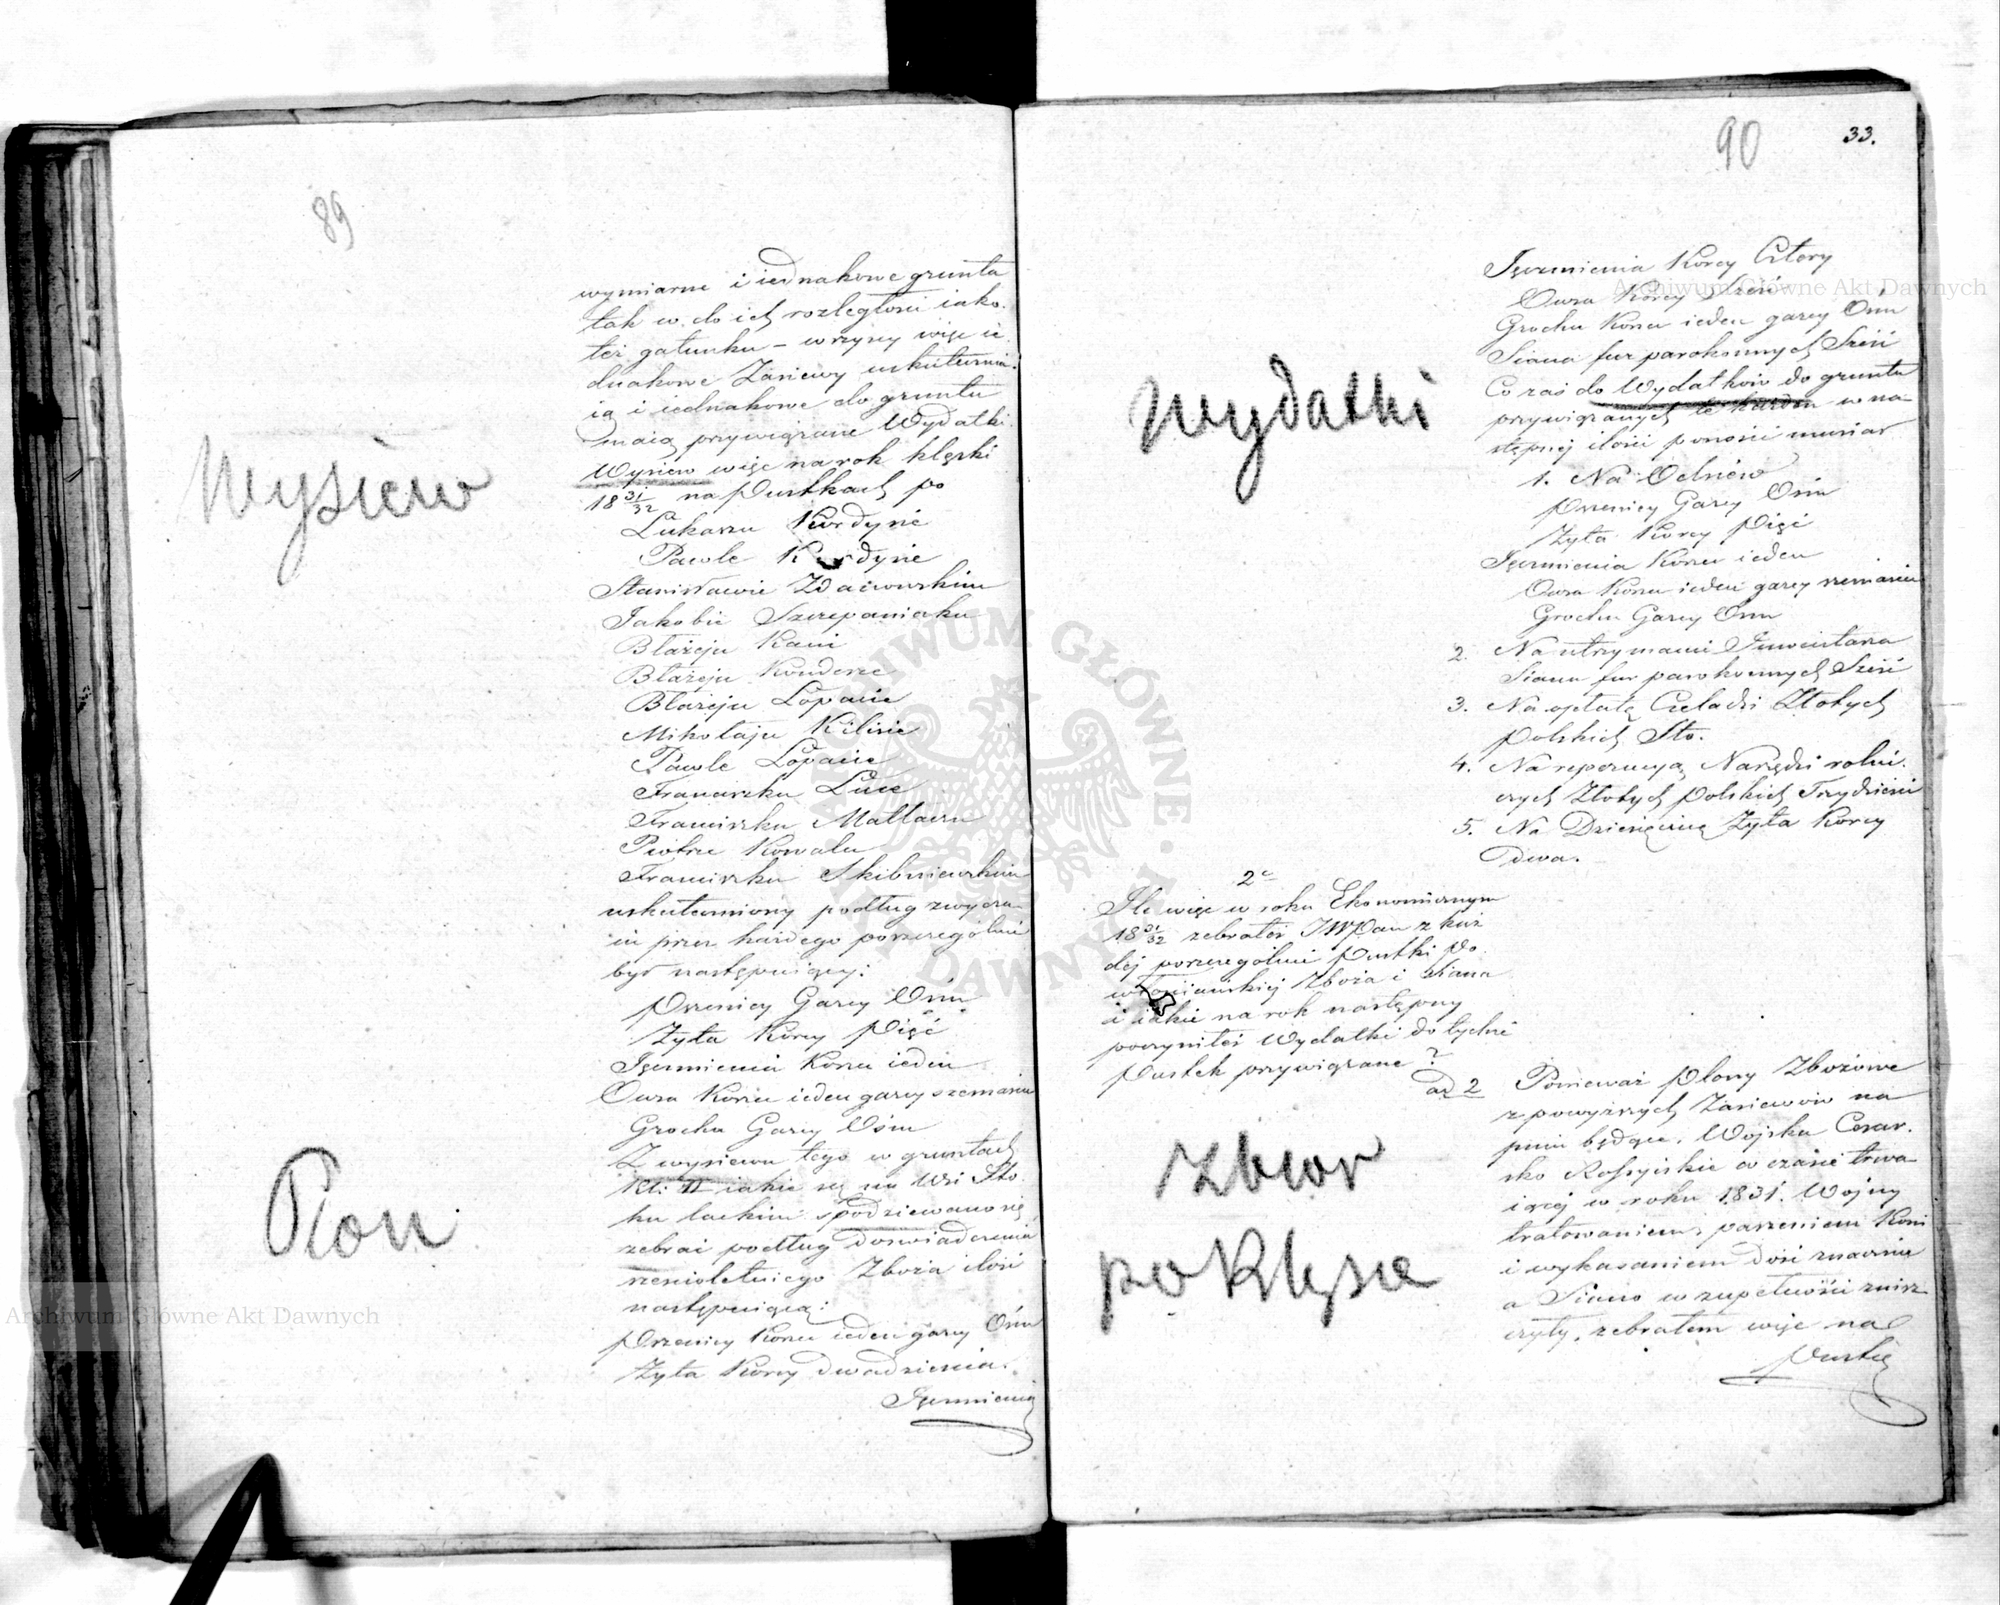 89
wymiarne i iednakowe grunta
tak w do ich rozległości iako
też gatunku – wszyscy więc ie
dnakowe Zasiewy uskutecznia
ią i iednakowe do gruntu
maią przywiązane Wydatki
Wysiew więc na rok klęski
18 31/32 na Pustkach po
Wysiew
Łukaszu Kurdyie
Pawle Kurdyie
Stanisławie Zdaiewskim
Jakobie Szczepaniaku
Błażeju Kani
Błażeju Kouderze
Błażeju Łopacie
Mikołaju Kilisie
Pawle Łopacie
Franciszku Luce
Franciszku Matłaczu
Piotrze Kowalu
Franciszku Skibniewskim
uskuteczniony podług zwycza
iu przez każdego poszczególnie
był następuiący:
Pszenicy Garcy Ośm
Żyta Korcy Pięć
Jęczmienia Korzec ieden
Owsa Korzec ieden garcy szesnaście
Grochu Garcy Ośm
Z wysiewu tego w gruntach
Kl: II iakie są na Wsi Sto
ku lackim spodziewano się
zebrać podług doświadczenia
sześcioletniego Zboża ilość
następuiącą:
Plon
Pszenicy Korzec ieden garcy Ośm
Żyta Korcy dwadzieścia.
Jęczmienia
90
33.
Jęczmienia Korcy Cztery
Owsa Korcy Sześć
Grochu Korzec ieden garcy Ośm
Siana fur parokonnych Sześć
Co zaś do Wydatków do gruntu
przywiązanych te każden w na
stępnej ilości ponosić musiał
Wydatki
1. Na Odsiew
Pszenicy Garcy Ośm
Żyta Korcy Pięć
Jęczmienia Korzec ieden
Owsa Korzec ieden garcy szesnaście
Grochu Garcy Ośm
2. Na utrzymanie Inwentarza
Siana fur parokonnych Sześć
3. Na opłatę Czeladzi Złotych
Polskich Sto.
4. Na reperacyą Narzędzi rolni
czych Złotych Polskich Trzydzieści
5. Na Dziesięcinę Żyta Korcy
dwa.
2e
Ile więc w roku Ekonomicznym
18 31/32 zebrałeś JWPan z każ
dej poszczególnie Pustki po
włościańskiej Zboża i Siana
i iakie na rok następny
poczyniłeś Wydatki do tychże
Pustek przywiązane?
ad 2 Ponieważ Plony Zbożowe
z powyższych Zasiewów na
pniu będące, Wojska Cesar
sko Rossyiskie w czasie trwa
iącej w roku 1831. Wojny
tratowaniem, paszeniem Koni
i wykaszaniem dość znacznie
a Siano w zupełności znisz
czyły, zebrałem więc na
Pustce
Zbior
po klęsce
Archiwum Główne Akt Dawnych
Archiwum Główne Akt Dawnych
ARCHIWUM GŁÓWNE AKT DAWNYCH